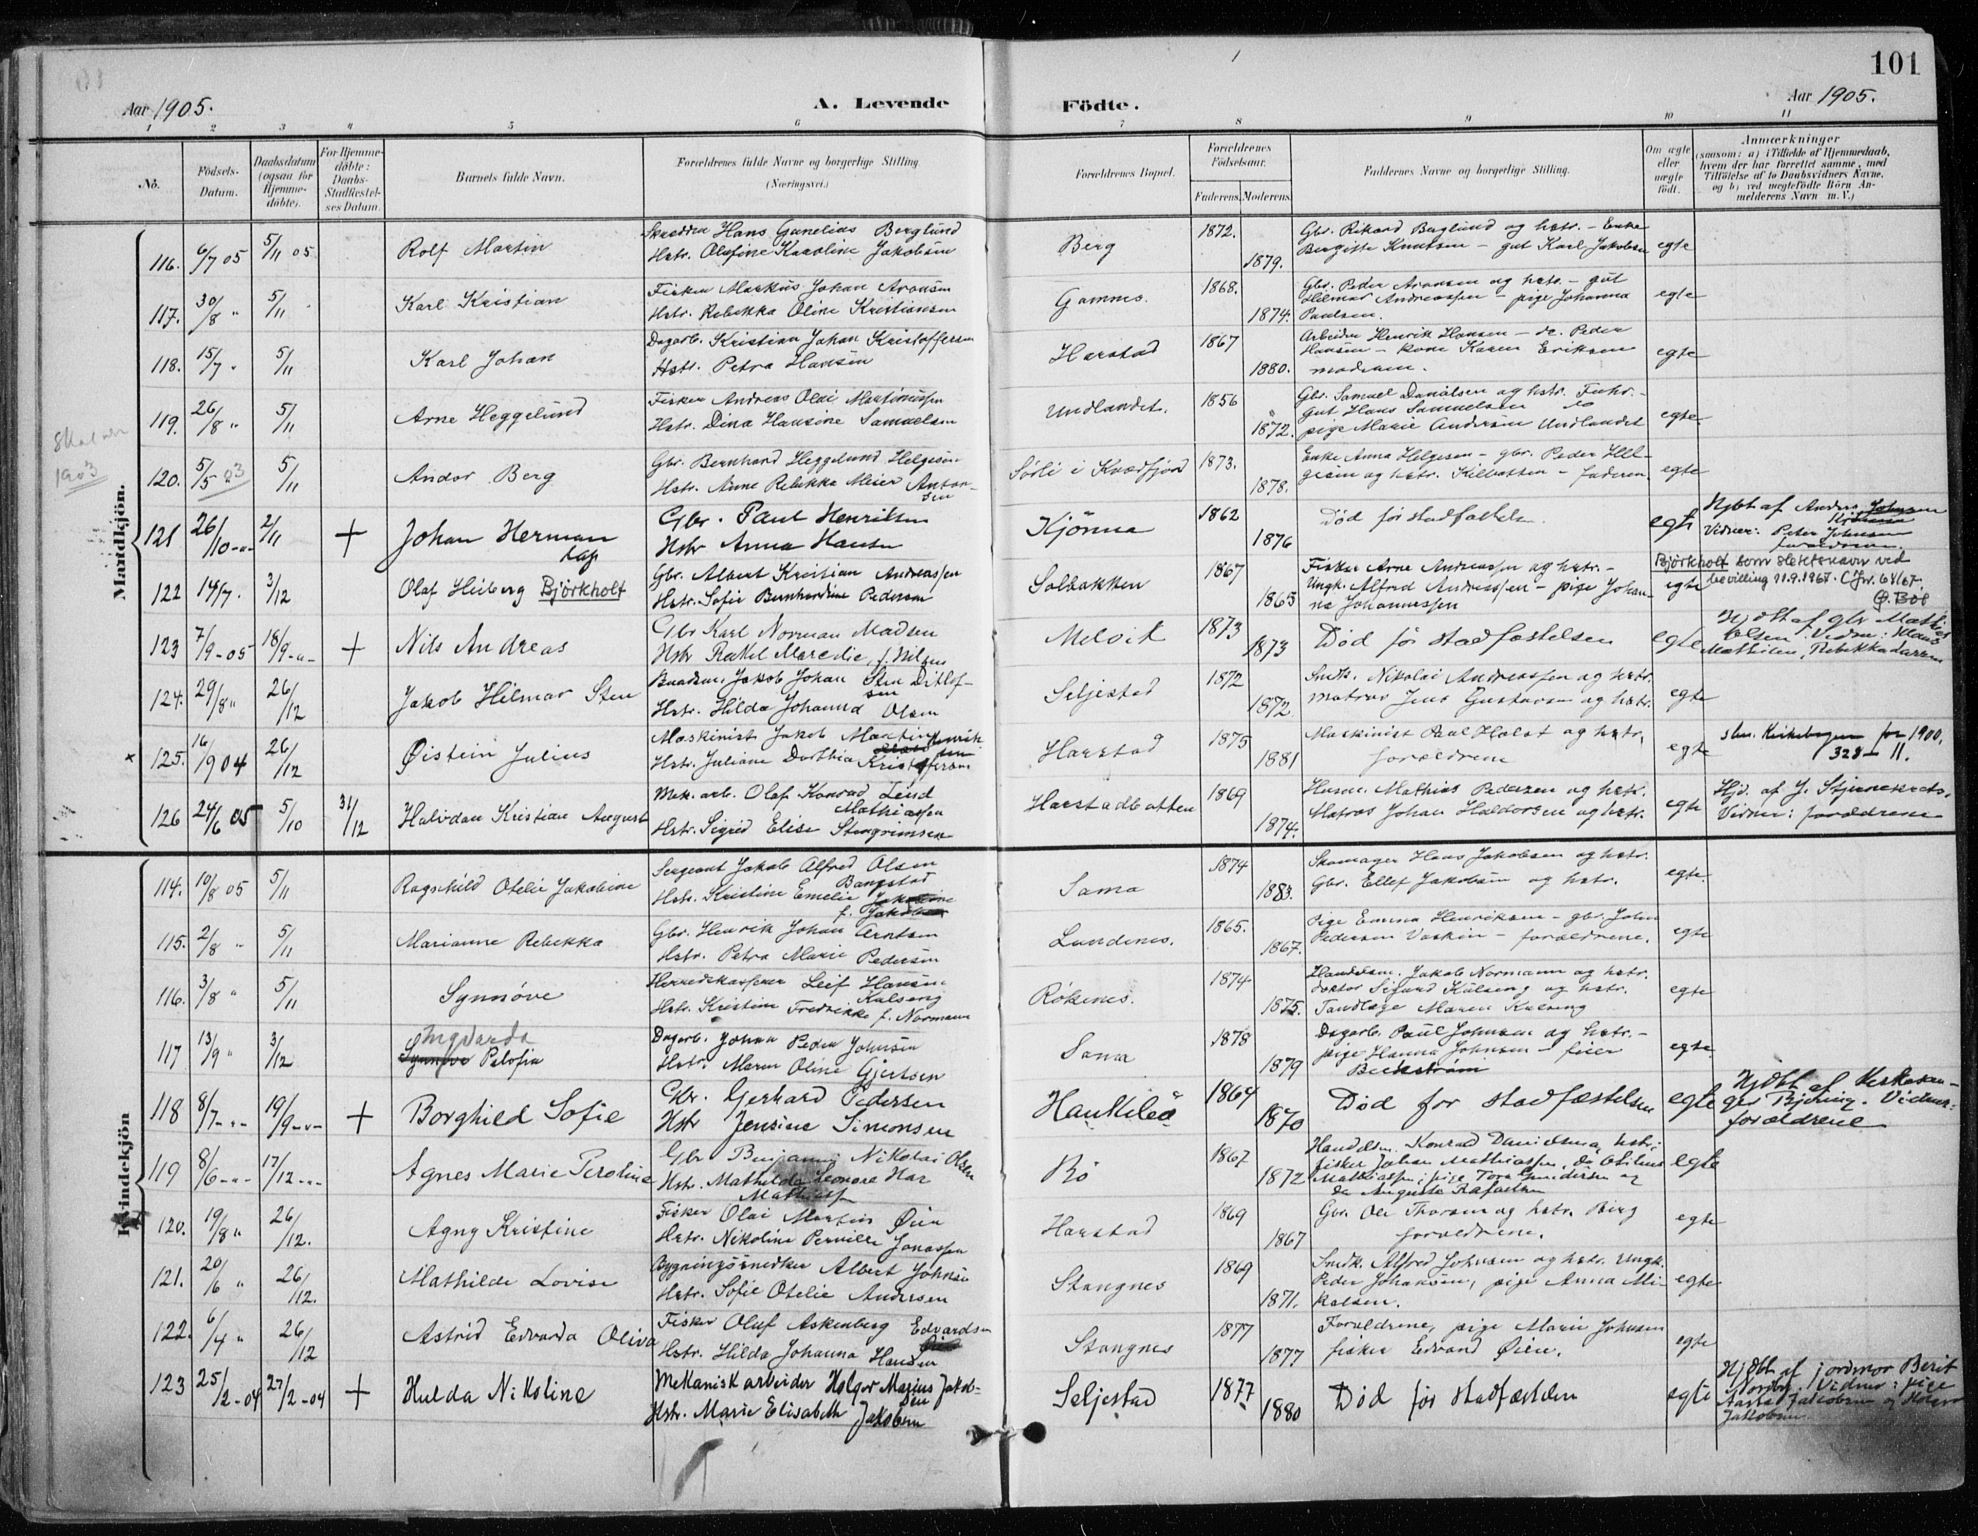 101
Aar 1905.
A. Levende Födte.
Aar 1905.
1 2 3 4 5 6 7 8 9 10 11
No.
Födsels-Datum.
Daabsdatum (ogsaa for Hjemme-döbte).
For Hjemme-döbte: Daabs-Stadfæstel-ses Datum.
Barnets fulde Navn.
Forældrenes fulde Navne og borgerlige Stilling. (Næringsvei.)
Forældrenes Bopæl.
Forældrenes Födselsaar.
Faderens. Moderens.
Faddernes Navne og borgerlige Stilling.
Om ægte eller uægte födt.
Anmærkninger
(saasom: a) i Tilfælde af Hjemmedaab, hvem der har forrettet samme, med Tilföielse af to Daabsvidners Navne, og b) ved uægtefödte Börn An-melderens Navn m. V.)
Mandkjön.
116. 6/7 05 5/11 05 Rolf Martin
Hans Berglund
Hstr. Olufine Karoline Jakobsen
Berg 1872. 1879.
Bergitte Knutsen - gut Karl Jakobsen egte
117. 30/8 " 5/11 Karl Kristian
Fisker Markus Johan Aronsen
Hstr. Rebekka Oline Kristiansen
1868. 1874.
Gbr. Peder Aronsen og hstr. - gut
Hilmar Andreassen - pige Johanna
Paulsen. egte
118. 15/7 " 5/11 Karl Johan
Dagarb. Kristian Johan Kristoffersen
Hstr. Petra Hansen
Harstad 1867 1880.
Arbeider Henrik Hansen - do. Peder
Hansen - kone Karen Eriksen
moderen. egte
119. 26/8 " 5/11 Arne Heggelund
Fisker Andreas Olai Martinussen
Hstr. Dina Hansine Samuelsen
Undlandet. 1856 1872.
Gbr. Samuel Danielsen og hstr.
gut Hans Samuelsen
pige Marie Andersen Undlandet egte
Skal
1903
120. 5/5 03 5/11 Andor Berg
Gbr. Bernhard Heggelund Helgesen
Hstr. Anne Rebekka Meier Anton-
sen
Sörli i Kvædfjord 1873. 1878.
Enke Anna Helgesen - gbr. Peder Hel-
gesen og hstr. Kilbotten - faderen egte
121 26/10 2/11 + Johan Herman
Gbr. Paul Henriksen
Hstr Anna Hansen
Kjönna 1862 1876
Död för stadfæstelsen. egte
Hjdbt af Johnsen
Vidner: Peter Johnsen
forældrene.
122 14/7. 3/12 Olaf Heiberg Björkholt
Gbr. Albert Kristian Andreassen
Hstr. Sofie Bernhardine Pedersen
Solbakken 1867 1863
Fisker Arne Andreassen og hstr. -
Ungk. Alfred Andreassen - pige Johan-
ne Johannessen egte
Björkholt som slektsnavn ved
bevilling 11.9.1967.
123 7/9 - 05 18/9 + Nils Andreas
Gbr Karl Norman Madsen
Hstr Rakel f. Nilsen
Melvik 1873 1873
Död för stadfæstelsen egte
Hjdbt af gbr Mathias
Olsen. Vidner: Klaus
Mathisen, Rebekka Larsen
124. 29/8 " 26/12 Jakob Hilmar Sten
Jakob Johan Sten Ditlef-
sen
Hstr. Hilda Johanna Olsen
Seljestad 1872 1872
Smk. Nikolai Andreassen og hstr.
matros Jens Gustavsen og hstr. egte
× 125. 16/9 04 26/12 Øistein Julius
Maskinist Jakob Martin Henrik-
sen
Hstr. Juliane Dorthia Kristoffersen
Harstad 1875 1881
Maskinist Paul Holst og hstr.
forældrene egte
Kirkebogen for 1900.
328 - 11.
126 24/6 05 5/10 31/12 Halvdan Kristian August
Mek. arb. Olaf Konrad Lind
Mathiassen
Hstr. Sigrid Elise Stengrimsen
Harstadbotten 1869 1874.
Husm. Mathias Pedersen og hstr.
Matros Johan Haldorsen og hstr. egte
Hjd. af J.
Vidner: forældrene
Kvindekjön
114. 10/8 05 5/11 Ragnhild Otelie Jakobine
Sergeant Jakob Alfred Olsen
Bangstad
Hstr. Kristine Emelie
f. Jakobsen
Sama 1874 1883.
Skomager Hans Jakobsen og hstr.
Gbr. Ellef Jakobsen og hstr. egte.
115. 2/8 " 5/11 Marianne Rebekka
Gbr. Henrik Johan Arntsen
Hstr. Petra Marie Pedersen
Lundenes. 1865. 1867.
Pige Emma Henriksen - gbr. John
Pedersen Vaskin - forældrene. egte
116. 3/8 " 5/11 Synnöve
Herredskasserer Leif Hansen
Kulseng
Hstr. Kristine Fredrikke f. Normann
Rökenes. 1874 1875.
Handelsm. Jakob Normann og hstr.
doktor Sigurd Kulseng og hstr.
Tandlæge Maren Kulseng egte
117 13/9 " 3/12 Ingvarda
Synnöve Palofia
Dagarb. Johan Peder Johnsen
Hstr. Maren Oline Gjertsen
Sama 1878 1879
Dagarb. Paul Johnsen og hstr. -
pige Hanna Johnsen - feier
Beckström egte
118 8/7 19/9 + Borghild Sofie
Gbr. Gerhard Pedersen
Hstr Jensine Simonsen
1864 1870
Död for stadfæstelsen egte
Hjdbt af Kirkesan-
ger Bjering. Vidner:
forældrene
119 8/6 17/12 Agnes Marie Peroline
Gbr Benjamin Nikolai Olsen
Hstr. Mathilde Leonore Har
Mathiassen
Rö 1867 1872
Handelsm. Konrad Danielsen, hstr;
fisker Johan Mathiassen, do
Mathiassen; pige Tora Gundersen og
do Augusta Rafaelsen egte
120. 19/8 " 26/12. Agny Kristine
Fisker Olai Martin Øien
Hstr. Nikoline Pernille Jonassen
Harstad 1869 1867
Gbr. Ole Thoresen og hstr. Berg
forældrene. egte
121. 20/6 " 26/12. Mathilde Lovise
Bygningssnedker Albert Johnsen
Hstr. Sofie Otelie Andersen
Stangnes 1869 1871.
Smdk. Alfred Johnsen og hstr. Ungk.
Peder Johansen, pige Anna Mi-
kalsen. egte
122. 6/4 " 26/12 Astrid Edvarda Oliva
Fisker Oluf Askenberg Edvardsen
Hstr. Hilda Johanna Hansen
Stangnes 1877 1877
Forældrene, pige Marie Johnsen
fisker Edvard Øien. egte
123 25/2 - 04 27/2 - 04 + Hulda Nikoline
Mekanisk arbeider Holger Marius Jakob-
sen
Hstr. Marie Elisabeth Jakobsen
Seljestad 1877 1880
Död för stadfæstelsen egte
Hjdbt af jordmor Berit
Nordby. Vidner: pige
Aasta Jakobsen og Holger
Jakobsen